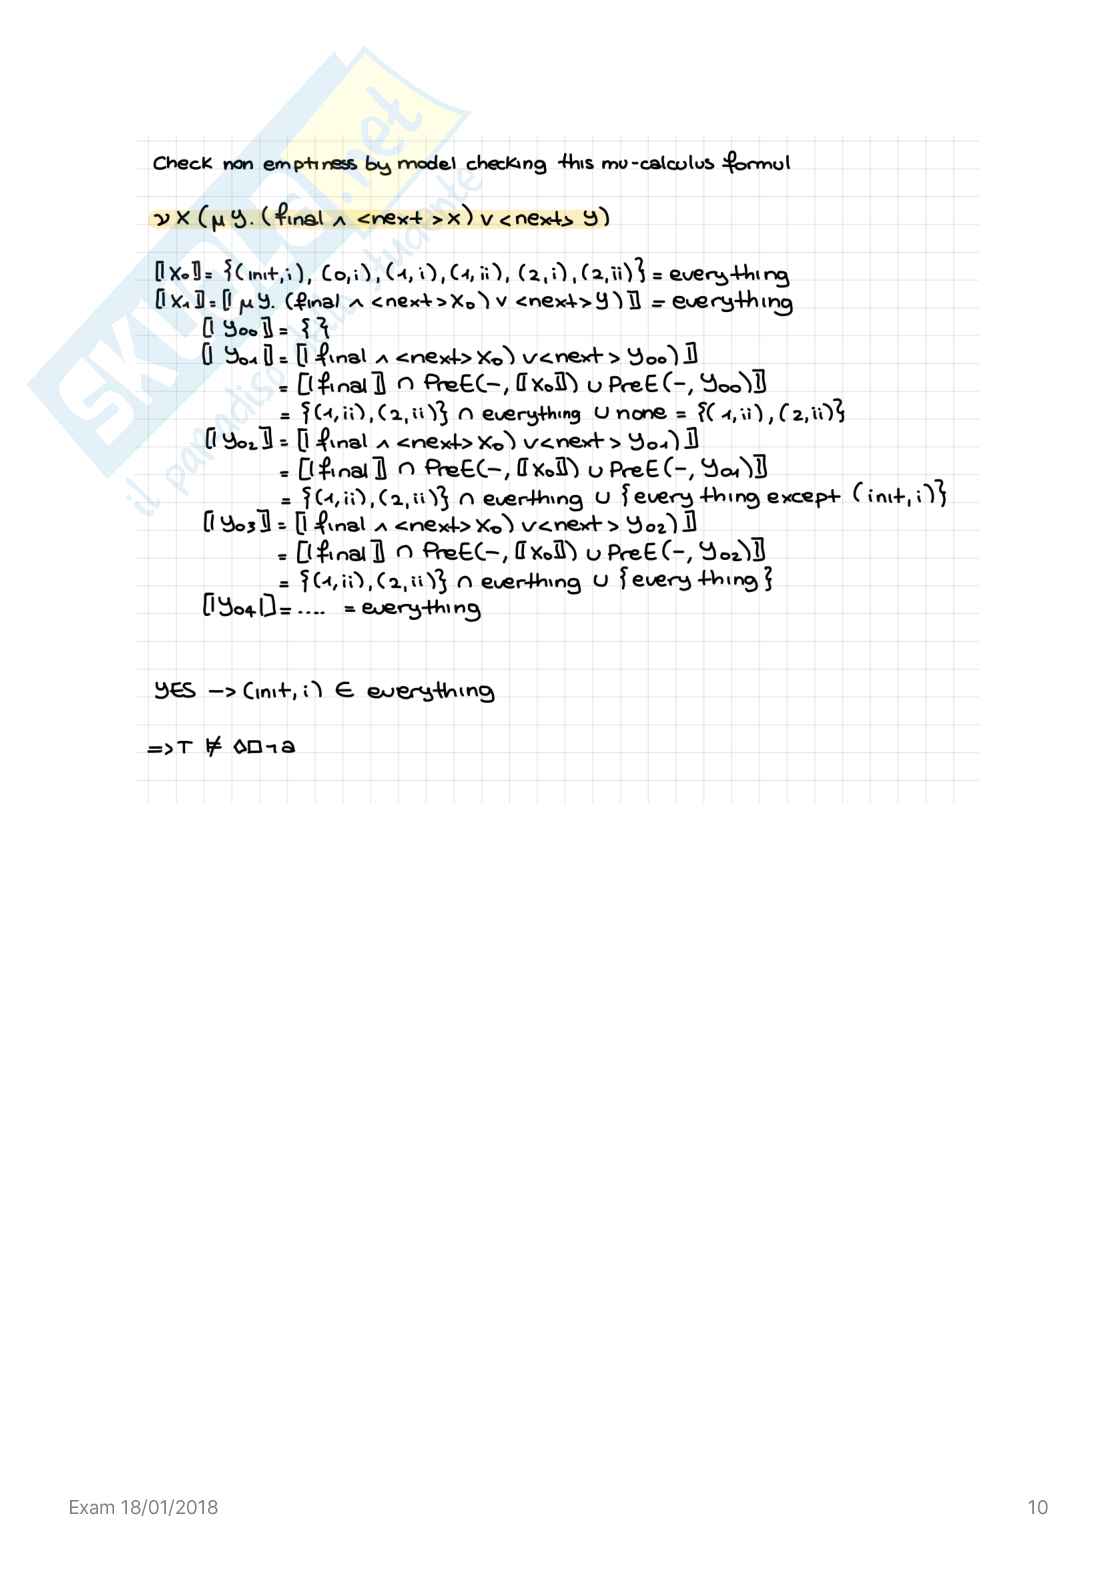 SKUOLA.net
il paradiso dello studente
Check non emptiness by model checking this mu-calculus formul
νX(μy.(final ∧ <next>x) ∨ <next> y)
[|X₀|] = {(init,i), (0,i), (1,i), (1,ii), (2,i), (2,ii)} = everything
[|X₁|] = [| μy. (final ∧ <next>X₀) ∨ <next>y) |] = everything
[| y₀₀ |] = { }
[| y₀₁ |] = [| final ∧ <next> X₀) ∨ <next> y₀₀) |]
= [|final|] ∩ PreE(-, [|X₀|]) ∪ PreE(-, y₀₀)|]
= {(1,ii), (2,ii)} ∩ everything ∪ none = {(1,ii), (2,ii)}
[| y₀₂ |] = [| final ∧ <next> X₀) ∨ <next> y₀₁) |]
= [|final|] ∩ PreE(-, [|X₀|]) ∪ PreE(-, y₀₁)|]
= {(1,ii), (2,ii)} ∩ everthing ∪ {every thing except (init,i)}
[| y₀₃ |] = [| final ∧ <next> X₀) ∨ <next> y₀₂) |]
= [|final|] ∩ PreE(-, [|X₀|]) ∪ PreE(-, y₀₂)|]
= {(1,ii), (2,ii)} ∩ everthing ∪ {every thing}
[|y₀₄|] = .... = everything
YES -> (init,i) ∈ everything
=> T ⊭ ◇□¬a
Exam 18/01/2018
10